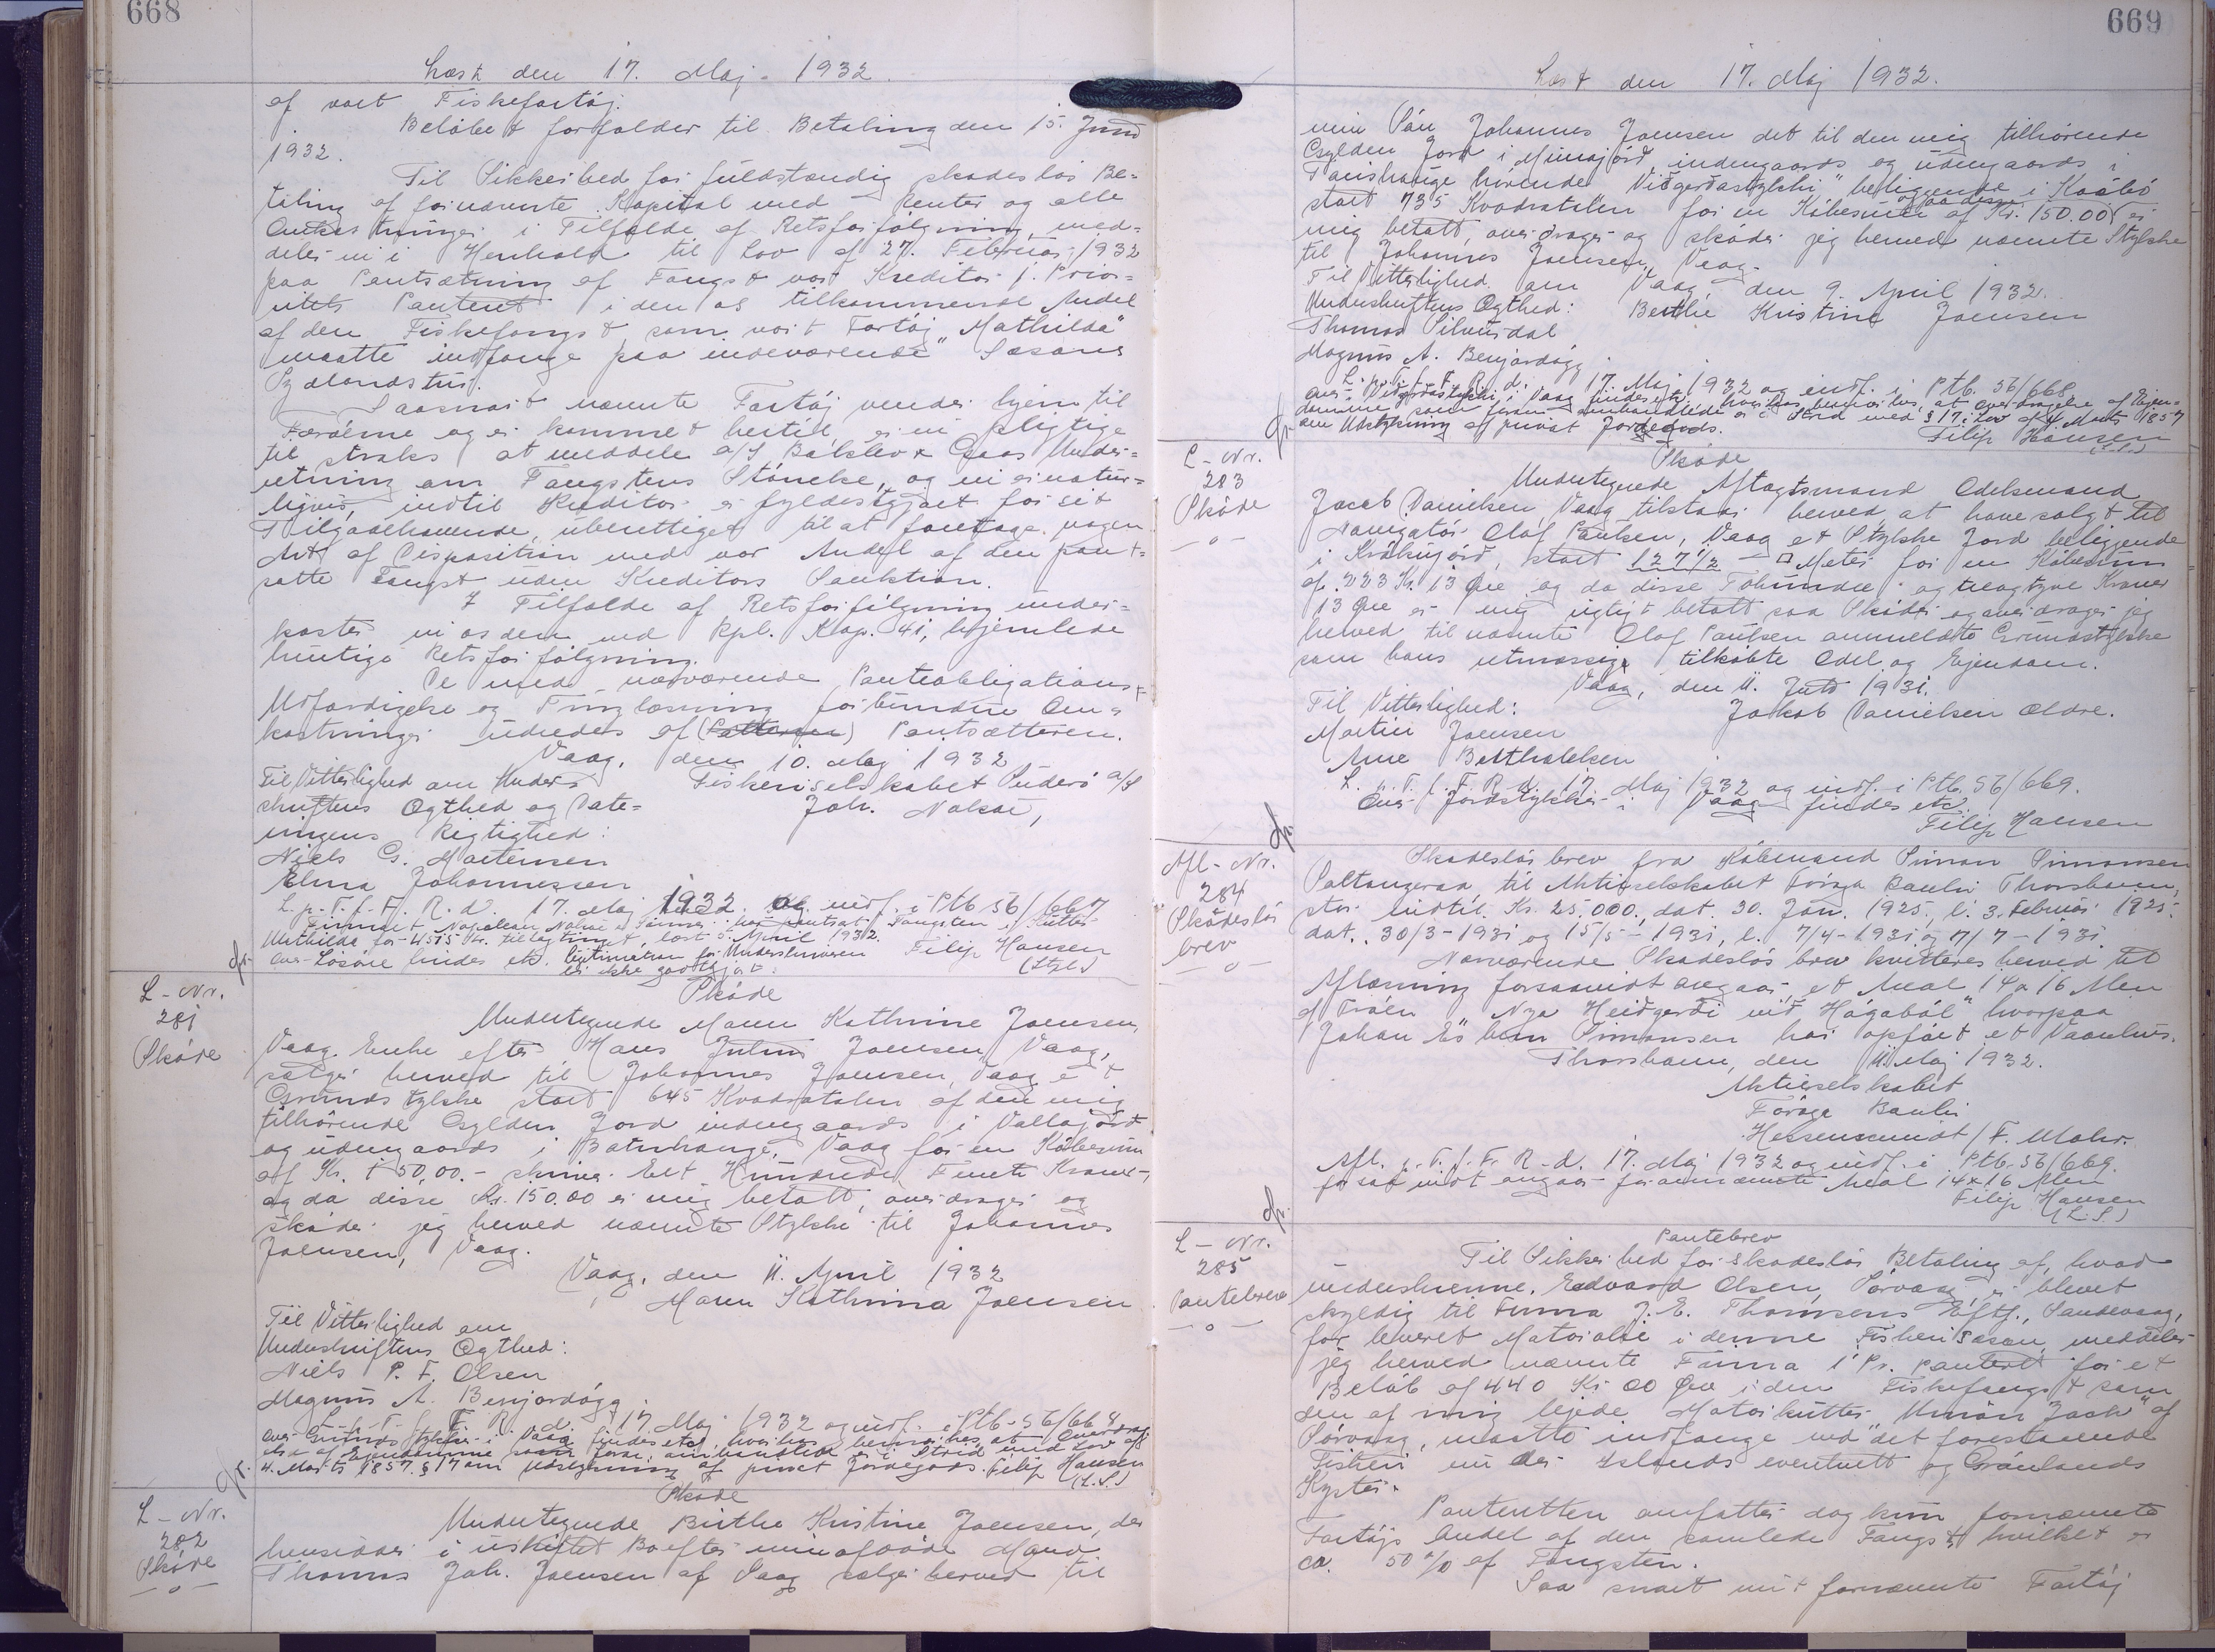 668
Læst den 17. Maj. 1932.
af vort Fiskefartøj.
Beløbet forfalder til Betaling den 15. Juni
1932.
Til Sikkerhed for fuldstændig skadesløs Be=
taling af fornævnte Kapital med Renter og alle
Omkostninger i Tilfælde af Retsforfølgning, med=
deler vi i Henhold til Lov af 27. Februar 1932
paa Pantsætning af Fangst vor Kreditor 1. Prior=
itets Panteret i den os tilkommende Andel
af den Fiskefangst som vort Fartøj "Mathilda"
maatte indfange paa indeværende Sæsons
Sydlandstur.
Saasnart nævnte Fartøj vender hjem til
Færøerne og er kommet hertil, er vi pligtige
til straks at meddele A/S Balslev & Gaas Under=
retning om Fangstens Størrelse, og vi er natur=
ligvis, indtil Kreditor er fyldestgjort for sit
Tilgodehavende, uberettiget til at foretage nogen
Art af Disposition med vor Andel af den pant=
satte Fangst uden Kreditors Sanktion.
I Tilfælde af Retsforfølgning under=
kaster vi os den ved Rpl. Kap. 41, hjemlede
hurtige Retsforfølgning.
De med nærværende Panteobligations
Udfærdigelse og Tinglæsning forbundne Om=
kostninger udredes af (Fattergen) Pantsætteren.
Vaag, den 10. Maj 1932
Til Vitterlighed om Under=
Fiskeriselskabet Suderø A/S
skriftens Ægthed og Date=
Joh. Nolsøe,
ringens Rigtighed:
Niels G. Mortensen
Elma Johannessen
L. p. T. f. F. R. d. 17. Maj 1932 og indf. i Ptb 56/667
Firmaet Napoleon Nolsøe & Sønner har pantsat i Fangsten af Kutter
Mathilda for 4515 Kr. til lagtinget, læst 5. April 1932.
Over Løsøre findes etc. Legitimation for Underskriveren
er ikke godtgjort.
Filip Hansen
(Stpl.)
L-Nr.
281
Skøde
Skøde
Undertegnede Maren Kathrine Joensen,
Vaag. Enke efter Hans Julius Joensen, Vaag,
sælger herved til Johannes Joensen, Vaag et
Grundstykke stort 645 Kvadratalen af den mig
tilhørende Gylden Jord indengaards i Vallajørd
og udengaards i Batnhauge, Vaag for en Købesum
af Kr. 150,00.- skriver Eet Hundrede Femti Kroner,
og da disse Kr. 150.00 er mig betalt, overdrager og
skøder jeg herved nævnte Stykke til Johannes
Joensen, Vaag.
Vaag, den 11. April 1932
Maren Kathrina Joensen
Til Vitterlighed om
Underskriftens Ægthed:
Niels P. F. Olsen
Magnus A. Benjardøgg.
L. p. T. f. F. R. d. 17 Maj 1932 og indf. i Ptb. 56/668
Over Grundstykker i Vaag findes etc. hvorhos bemærkes, at Overdrag=
else af Ejendomme som foran omhandlede er i Strid med Lov af
4. Marts 1857. § 17 om Udstykning af privat Jordegods. Filip Hansen
(L.S.)
L-Nr.
282
Skøde
Skøde
Undertegnede Birthe Kristine Joensen, der
hensidder i uskiftet Bo efter min afdøde Mand
Thomas Joh. Joensen af Vaag sælger herved til
669
Læst den 17. Maj 1932.
min Søn Johannes Joensen det til den mig tilhørende
Gylden Jord i Mínajørd, indengaards og udengaards i
hørende "Viðgerðastykki" beliggende i Kaabø
stort 735 Kvadratalen for en Købesum af Kr. 150.00 og paa disse er
mig betalt, overdrager og skøder jeg herved nævnte Stykke
til Johannes Joensen, Vaag.
Til Vitterlighed om Vaag, den 9. April 1932.
Underskriftens Ægthed: Birthe Kristine Joensen
Thomas Silversdal
Magnus A. Benjardøgg
L. p. T. f. F. R. d. 17. Maj 1932 og indf. i Ptb. 56/668
Over Viðgerðastykki, i Vaag findes etc. hvorhos bemærkes, at Overdragelse af Ejen=
domme som foran omhandlede er i Strid med § 17 i Lov af 4. Marts 1857
om Udstykning af privat Jordegods.
Filip Hansen
(L.S.)
L-Nr.
283
Skøde
Skøde
Undertegnede Aftægtsmand Odelsmand
Jacob Danielsen, Vaag tilstaar herved at have solgt til
Navigatør Olaf Poulsen, Vaag et Stykke Jord beliggende
i Krákujørð, stort 127 1/2 □ Meter for en Købesum
af 223 Kr. 13 Øre og da disse Tohundrede og treogtyve Kroner
13 Øre er mig rigtigt betalt saa Skøder og overdrager jeg
herved til nævnte Olaf Poulsen anmeldte Grundstykke
som hans retmæssige tilkøbte Odel og Ejendom.
Vaag, den 11. Juli 1931.
Til Vitterlighed:
Jakob Danielsen Ældre.
Martin Joensen
Arne Bertholdsen
L. p. T. f. F. R. d. 17. Maj 1932 og indf. i Ptb. 56/669.
Over Jordstykker i Vaag findes etc.
Filip Hansen
Afl-Nr.
284
Skadesløs
brev
Skadesløsbrev fra Købmand Simon Simonsen
Saltangeraa til Aktieselskabet Føroya Banki Thorshavn,
stor indtil Kr. 25.000., dat. 30. Jan. 1925., l. 3. Februar 1925.
dat. 30/3-1931 og 15/5-1931, l. 7/4-1931 og 7/7-1931
Nærværende Skadesløsbrev kvitteres herved til
Aflæsning forsaavidt angaar et Areal 14 x 16 Alen
af Trøen "Nya Heiðgerði við Hágaból" hvorpaa
Johan Es Simonsen har opført et Vaanhus.
Thorshavn, den 11. Maj 1932.
Aktieselskabet
Føroya Banki
Hessenschmidt / F. Mohr.
Afl. p. T. f. F. R. d. 17. Maj 1932 og indf. i Ptb. 56/669.
forsaavidt angaar fornævnte Areal 14x16 Alen
Filip Hansen
(L.S.)
L-Nr.
285
Pantebrev
Pantebrev
Til Sikkerhed for skadesløs Betaling af, hvad
underskrevne, Eedvard Olsen, Sørvaag, er blevet
skyldig til Firma J. E. Thomsens Eftf., Sandevaag,
for leveret Materiale i denne Fiskerisæson, meddeler
jeg herved nævnte Firma 1' Pr. panteret for et
Beløb af 440 Kr 00 Øre i den Fiskefangst som
den af mig lejede Motorkutter "Union Jack" af
Sørvaag, maatte indfange ved det forestaaende
Fiskeri under Islands eventuelt og Grønlands
Kyster.
Panteretten omfatter dog kun fornævnte
Fartøjs Andel af den samlede Fangst, hvilket er
ca. 50 % af Fangsten.
Saa snart mit fornævnte Fartøj